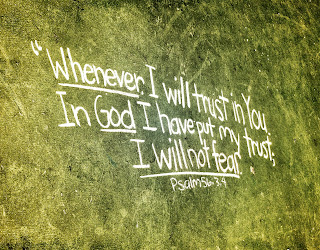 "Whenever I will trust in You.
In God I have put my trust;
I will not fear.
Psalm 56:3-4